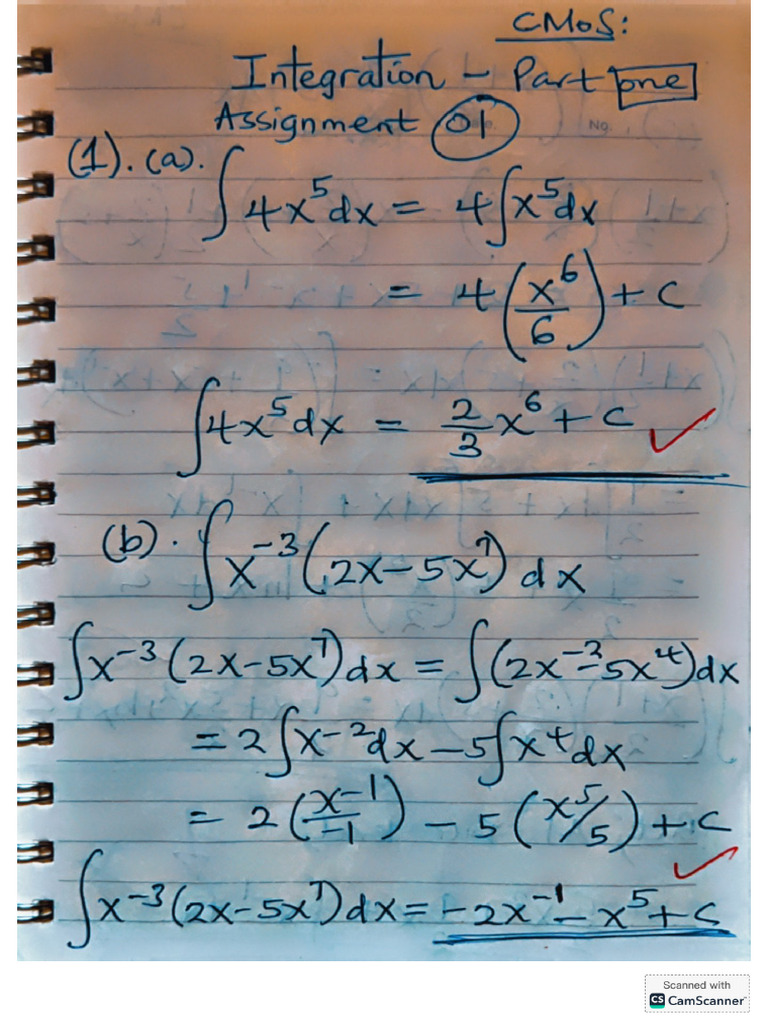 CMoS:
Integration - Part one
Assignment 01 No.
(1). (a). ∫4x⁵dx = 4∫x⁵dx
= 4(x⁶/6) + c
∫4x⁵dx = 2/3 x⁶ + c ✓
(b). ∫x⁻³(2x-5x⁷)dx
∫x⁻³(2x-5x⁷)dx = ∫(2x⁻²-5x⁴)dx
= 2∫x⁻²dx - 5∫x⁴dx
= 2(x⁻¹/-1) - 5(x⁵/5) + c
∫x⁻³(2x-5x⁷)dx = -2x⁻¹ - x⁵ + c ✓
Scanned with
CS CamScanner